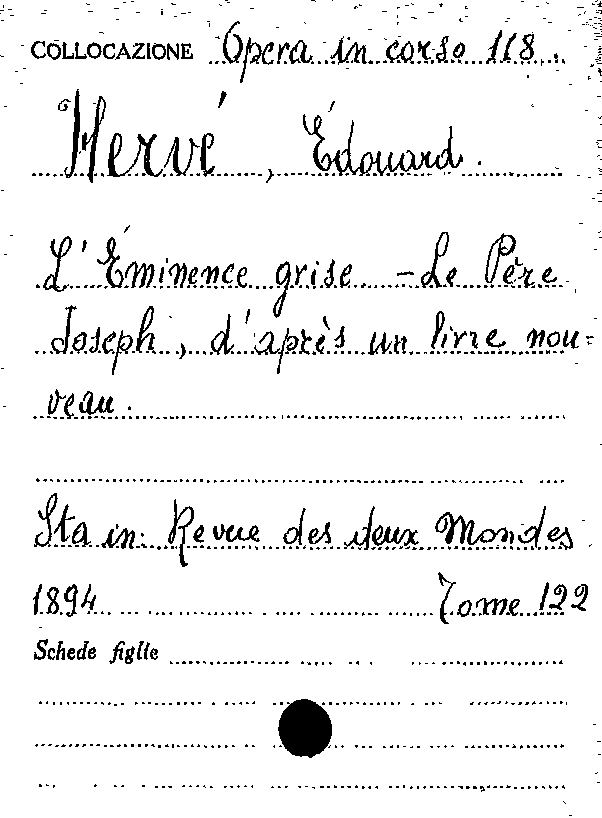 COLLOCAZIONE Opera in corso 118.
Hervé, Édouard.
L'Éminence grise. - Le Père
Joseph, d'après un livre nou=
veau.
Sta in: Revue des deux Mondes
1894 Tome 122
Schede figlie